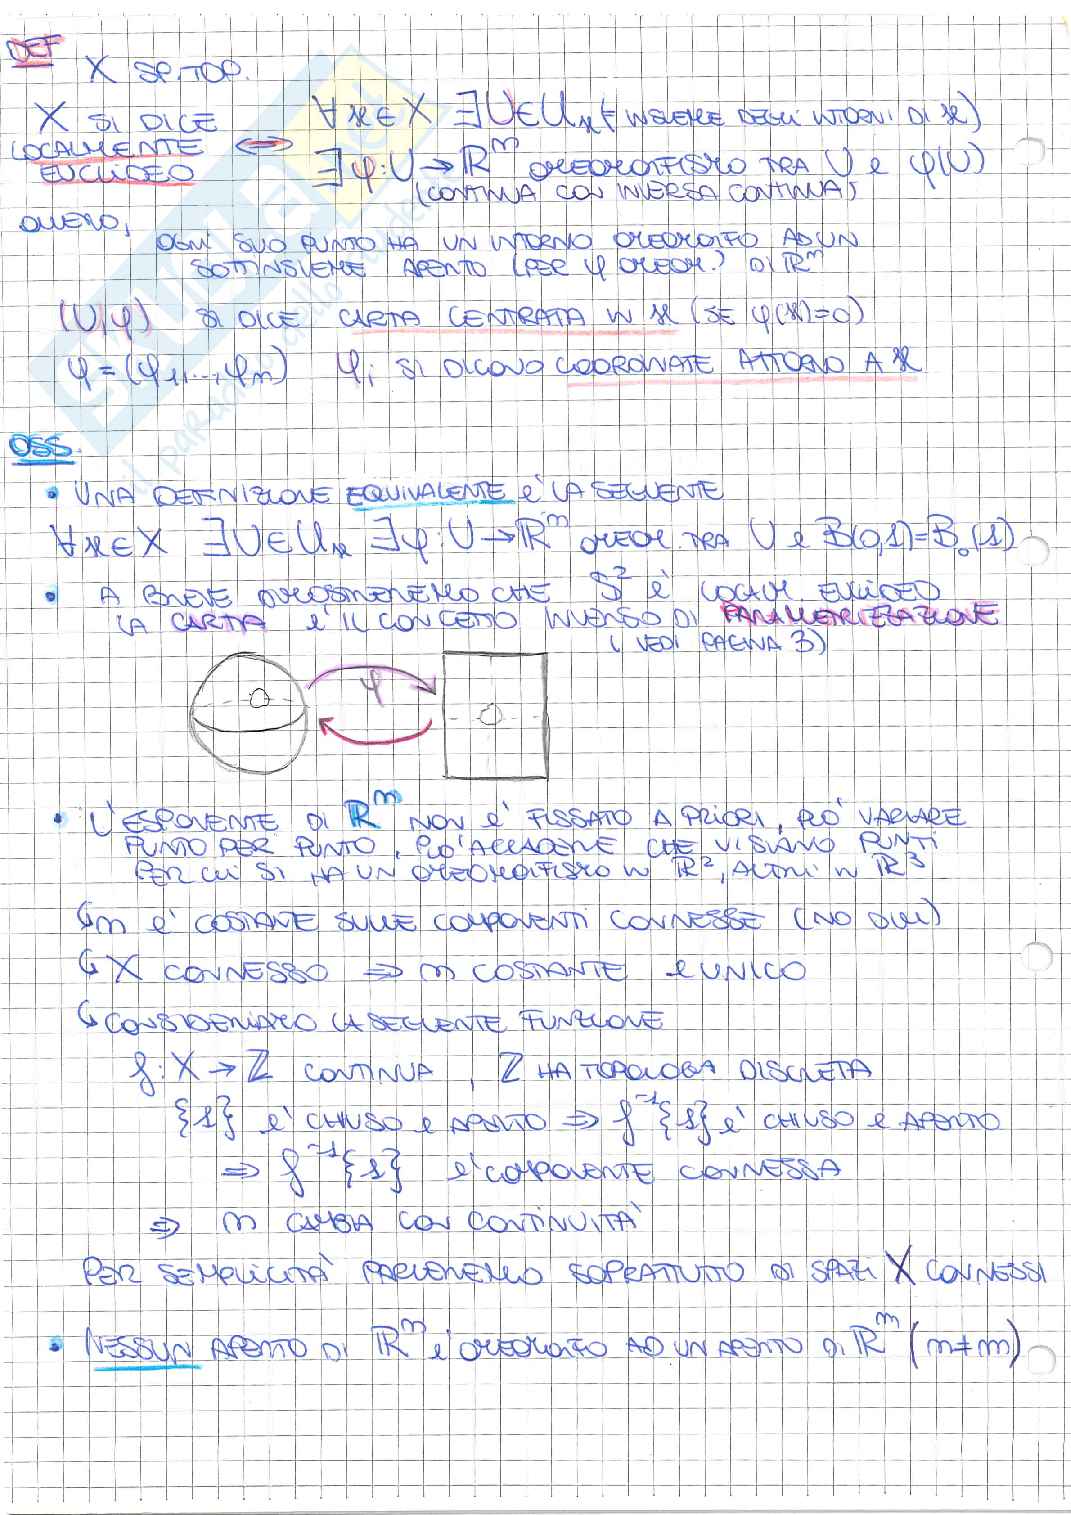 DEF
X SP. TOP.
X SI DICE LOCALMENTE EUCLIDEO ⟺ ∀x∈X ∃U∈Uₓ (= INSIEME DEGLI INTORNI DI x)
∃φ:U→ℝⁿ OMEOMORFISMO TRA U E φ(U)
(CONTINUA CON INVERSA CONTINUA)
OVVERO,
OGNI SUO PUNTO HA UN INTORNO OMEOMORFO AD UN
SOTTINSIEME APERTO (PER φ OMEOM.) DI ℝⁿ
(U,φ) SI DICE CARTA CENTRATA IN x (SE φ(x)=0)
φ=(φ₁,...,φₙ) φᵢ SI DICONO COORDINATE ATTORNO A x
OSS.
• UNA DEFINIZIONE EQUIVALENTE E' LA SEGUENTE
∀x∈X ∃U∈Uₓ ∃φ:U→ℝⁿ OMEOM. TRA U E B(0,1)=B₀(1)
• A BREVE DIMOSTREREMO CHE S² E' LOCALM. EUCLIDEO
LA CARTA E' IL CONCETTO INVERSO DI PARAMETRIZZAZIONE
(VEDI PAGINA 3)
φ
• L'ESPONENTE DI ℝⁿ NON E' FISSATO A PRIORI, PUO' VARIARE
PUNTO PER PUNTO, PUO' ACCADERE CHE VI SIANO PUNTI
PER CUI SI HA UN OMEOMORFISMO IN ℝ², ALTRI IN ℝ³
↳ n E' COSTANTE SULLE COMPONENTI CONNESSE (NO DIM)
↳ X CONNESSO ⇒ n COSTANTE E UNICO
↳ CONSIDERIAMO LA SEGUENTE FUNZIONE
f:X→ℤ CONTINUA, ℤ HA TOPOLOGIA DISCRETA
{1} E' CHIUSO E APERTO ⇒ f⁻¹{1} E' CHIUSO E APERTO
⇒ f⁻¹{1} E' COMPONENTE CONNESSA
⇒ n CAMBIA CON CONTINUITÀ
PER SEMPLICITÀ PARLEREMO SOPRATTUTTO DI SPAZI X CONNESSI
• NESSUN APERTO DI ℝⁿ E' OMEOMORFO AD UN APERTO DI ℝᵐ (n≠m)